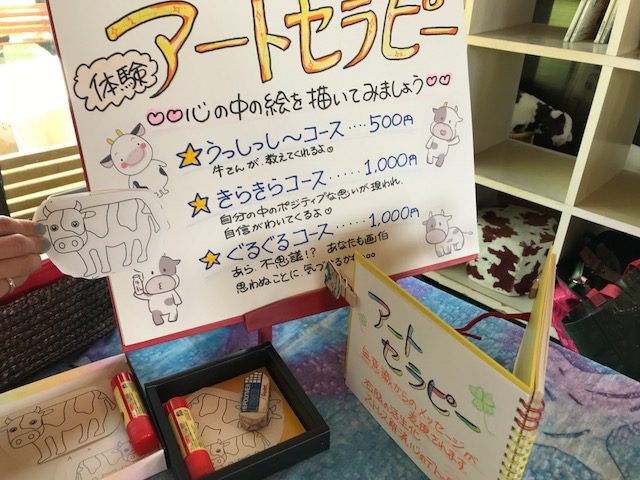 体験
アートセラピー
♡♡心の中の絵を描いてみましょう♡♡
☆うっしっし〜コース‥‥500円
牛さんが、教えてくれるよ♡
☆きらきらコース‥‥‥1,000円
自分の中のポジティブな思いが現われ、
自信がわいてくるよ♡
☆ぐるぐるコース‥‥‥1,000円
あら、不思議!? あなたも画伯
思わぬことに気づけるかも
アート
セラピー
無意識からのメッセージが
表現されます